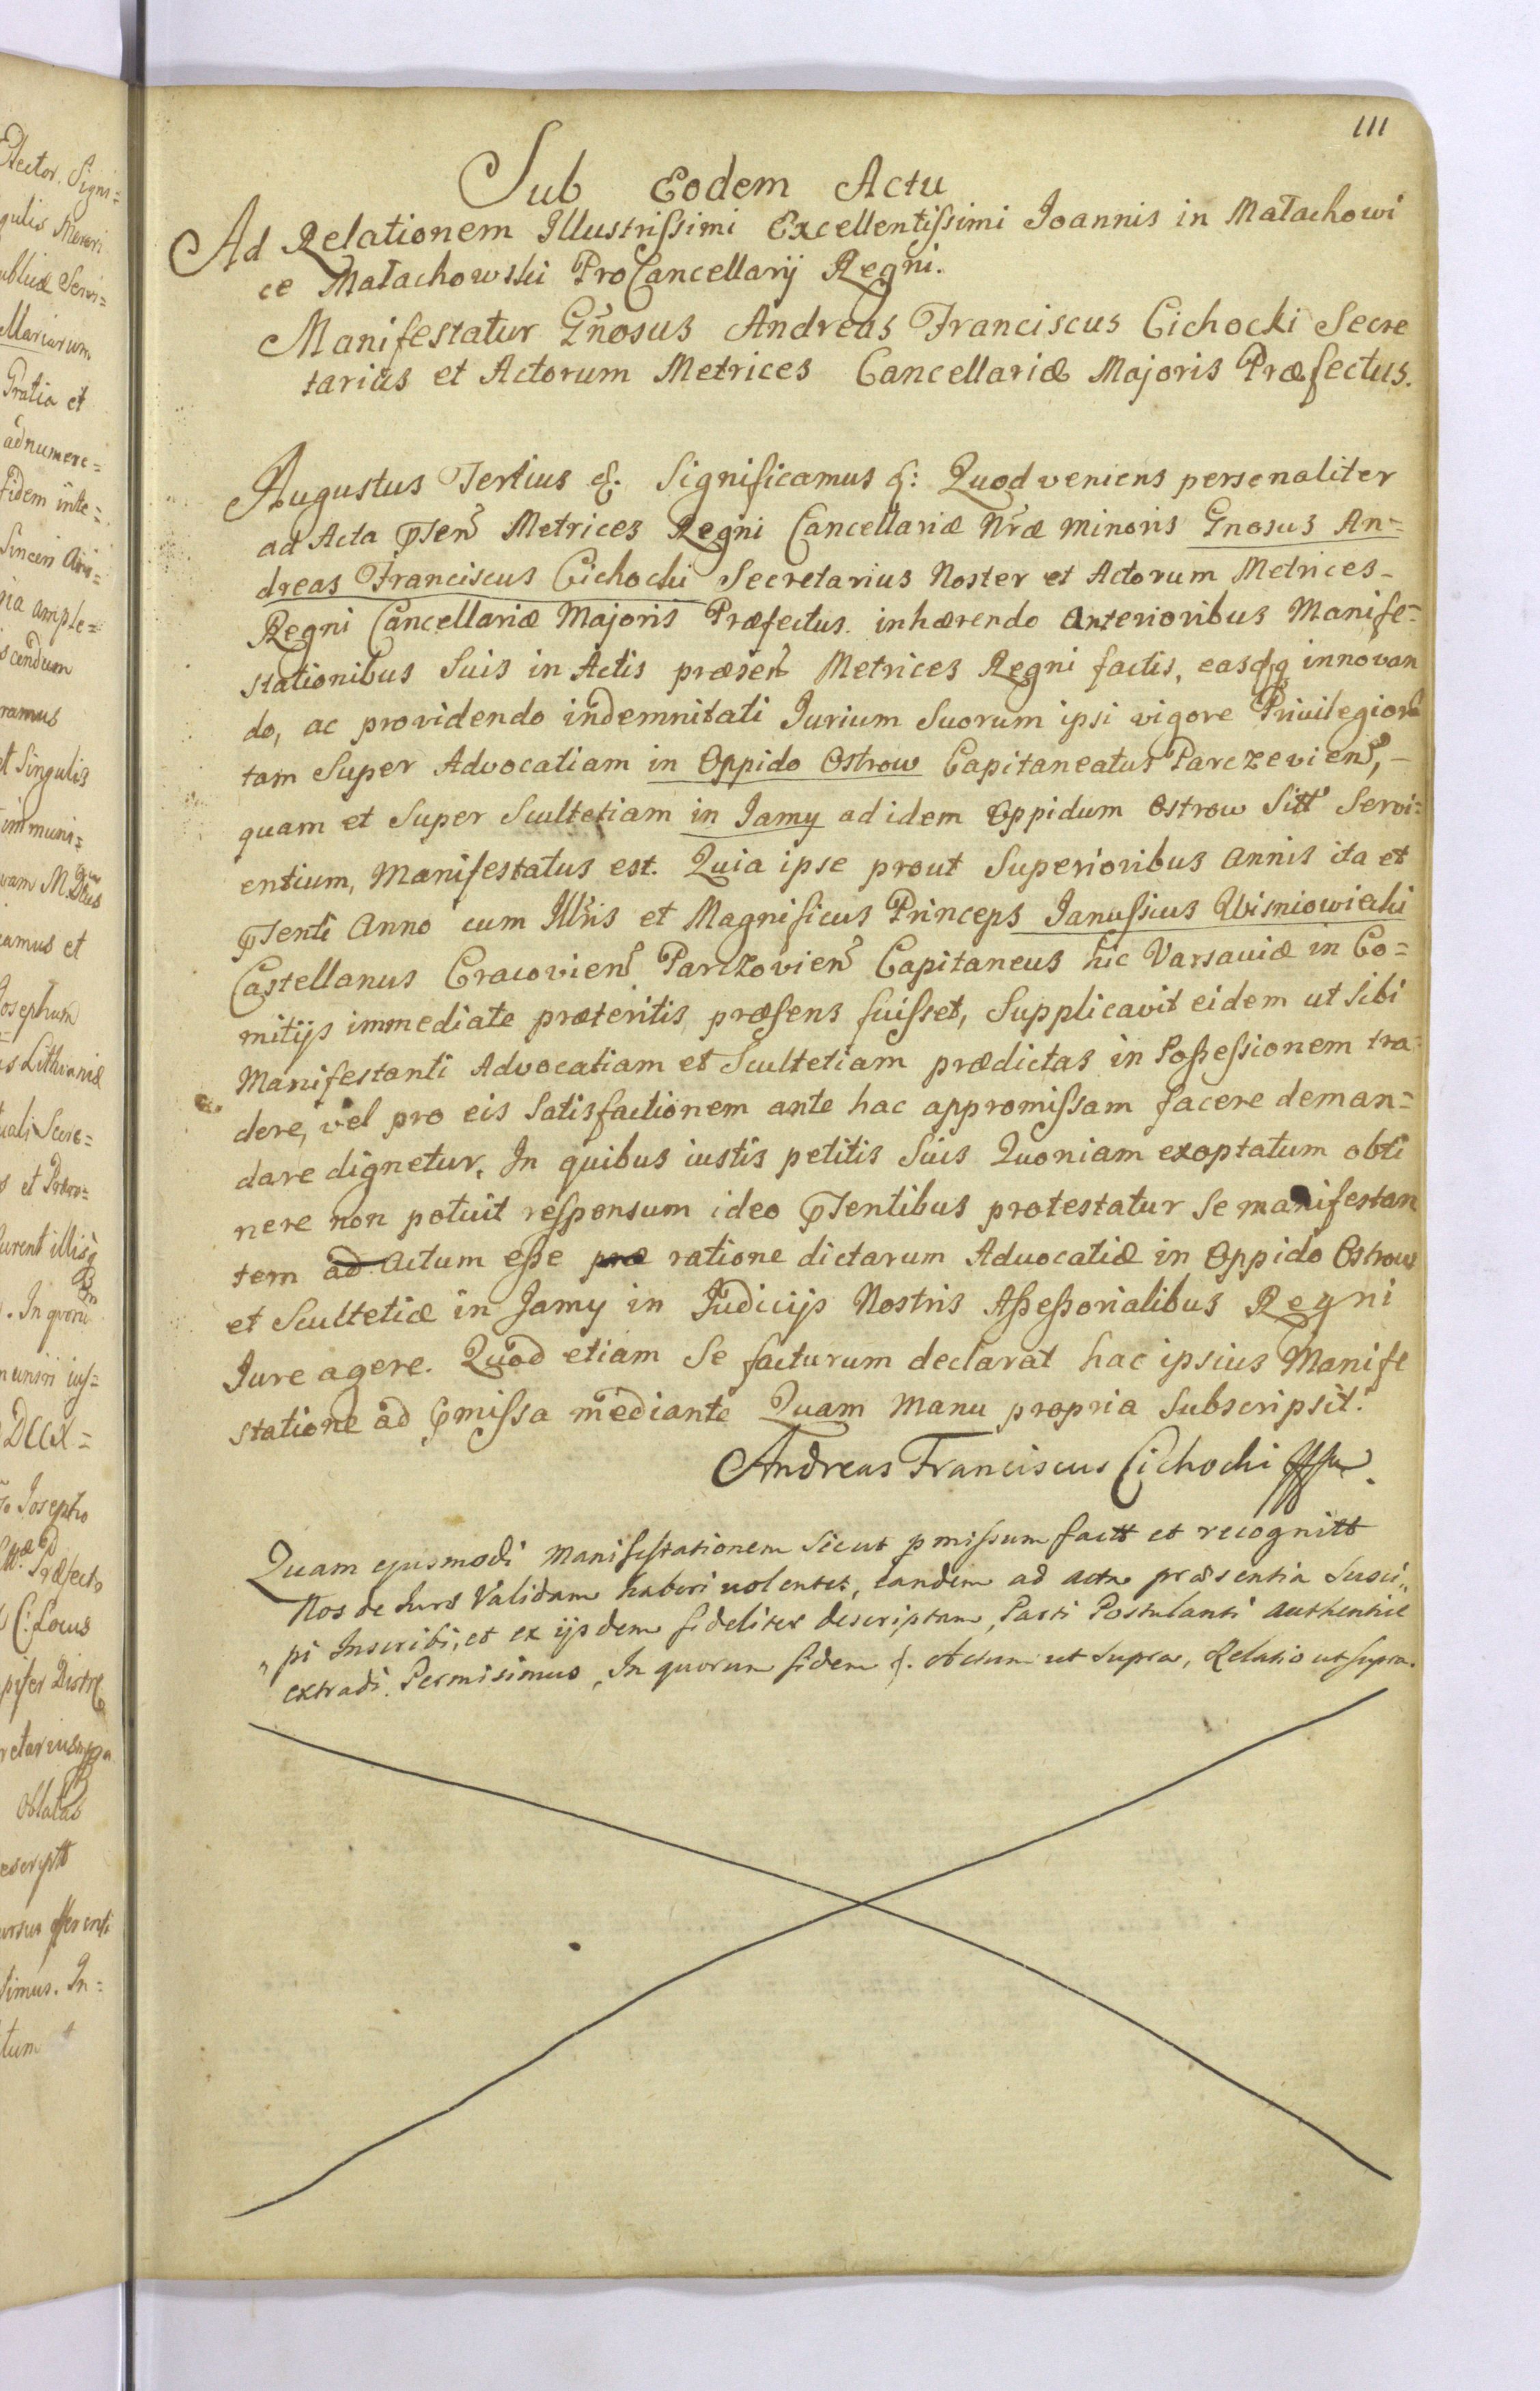 111
Sub Eodem Actu
Ad Relationem Illustrissimi Excellentissimi Joannis in Małachowi
ce Małachowski ProCancellarij Regni.
Manifestatur Gnosus Andreas Franciscus Cichocki Secre
tarius et Actorum Metrices Cancellariæ Majoris Præfectus.
Augustus Tertius &. Significamus &: Quod veniens personaliter
ad Acta pſen Metrices Regni Cancellariæ Nræ minoris Gnosus An=
dreas Franciscus Cichocki Secretarius Noster et Actorum Metrices-
Regni Cancellariæ Majoris Præfectus. inhærendo Anterioribus Manife=
stationibus Suis in Actis præsen Metrices Regni factis, easqq innovan
do, ac providendo indemnitati Jurium Suorum ipsi vigore Privilegior
tam Super Advocatiam in Oppido Ostrow Capitaneatus Parczevien, -
quam et Super Scultetiam in Jamy ad idem Oppidum Ostrow Sitt Servi=
entium, Manifestatus est. Quia ipse prout Superioribus Annis ita et
pſenti Anno cum Illris et Magnificus Princeps Janussius Wisniowiecki
Castellanus Cracovien Parczovien Capitaneus hic Varsaviæ in Co=
mitijs immediate præteritis præsens fuisset, Supplicavit eidem ut Sibi
Manifestanti Advocatiam et Scultetiam prædictas in Possessionem tra=
dere, vel pro eis Satisfactionem ante hac appromissam facere deman=
dare dignetur. In quibus iustis petitis Suis Quoniam exoptatum obti
nere non potuit responsum ideo pſentibus protestatur Se manifestan
tem ad actum esse præ ratione dictarum Advocatiæ in Oppido Ostrow
et Scultetiæ in Jamy in Judicijs Nostris Assessorialibus Regni
Jure agere. Quod etiam Se facturum declarat hac ipsius Manife
statione ad pmissa mediante Quam Manu propria Subscripsit.
Andreas Franciscus Cichocki
Quam ejusmodi Manifestationem Sicut pmissum factt et recognitt
Nos de Jure Validam haberi volentes, eandem ad acta præsentia Susci„
„pi Inscribi, et ex ijsdem fideliter descriptam, Parti Postulanti authentice
extradi Permisimus, In quorum fidem &. Actum ut Supra, Relatio ut supra.